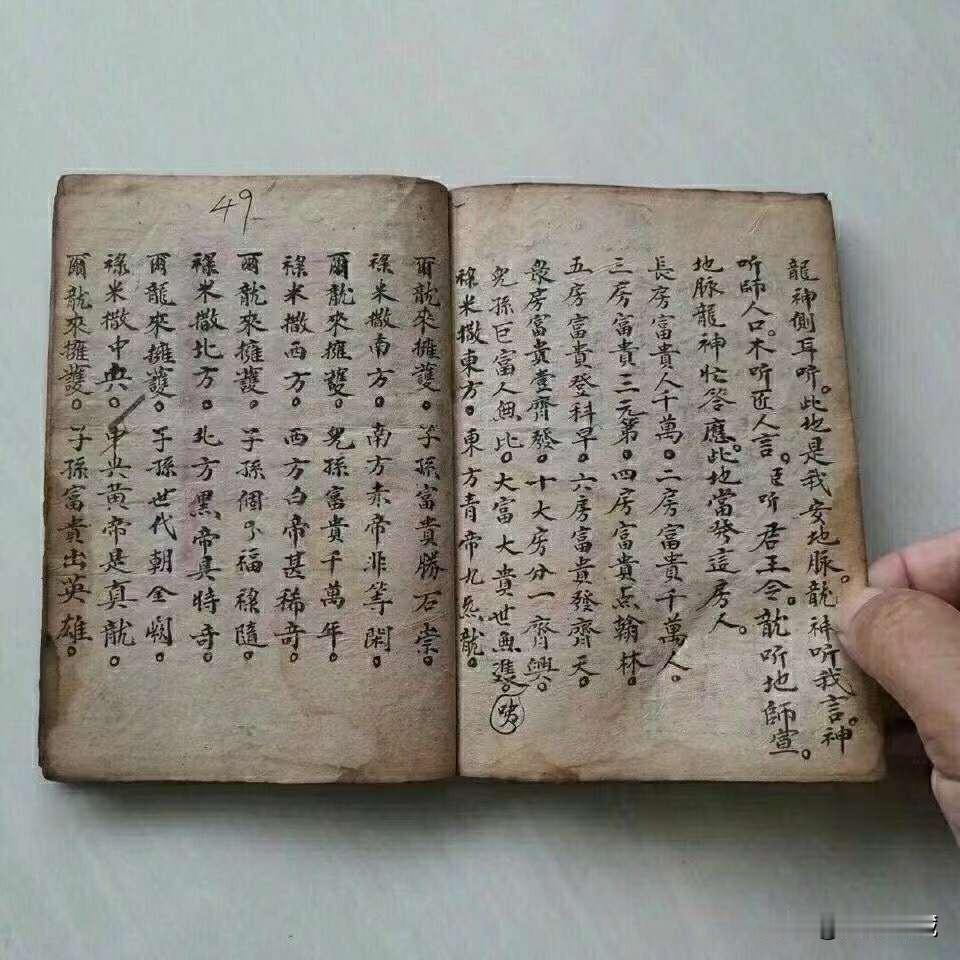 龍神側耳听。此地是我安地脈。龍神听我言。神
听師人口。木听匠人言。臣听君王令。龍听地師宣。
地脈龍神忙答應。此地當發這房人。
長房富貴人千萬。二房富貴千萬人。
三房富貴三元第。四房富貴点翰林。
五房富貴登科早。六房富貴發齊天。
衆房富貴壹齊發。十大房分一齊興。
兒孫巨富人無比。大富大貴世無
祿米撒東方。東方青帝九炁龍。
49
爾龍來擁護。子孫富貴勝石崇。
祿米撒南方。南方赤帝非等閑。
爾龍來擁護。兒孫富貴千萬年。
祿米撒西方。西方白帝甚稀奇。
爾龍來擁護。子孫個个福祿隨。
祿米撒北方。北方黑帝真特奇。
爾龍來擁護。子孫世代朝金闕。
祿米撒中央。中央黃帝是真龍。
爾龍來擁護。子孫富貴出英雄。